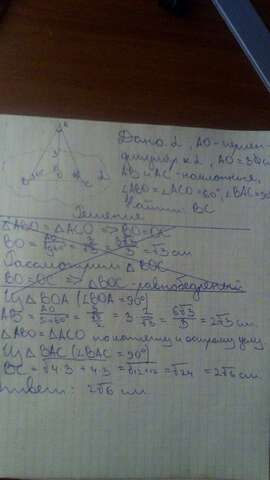 A
3
B
60°
O
60°
C
α
Дано: α, AO - перпен-
дикуляр к α, AO = 3см
AB и AC - наклонные,
∠ABO = ∠ACO = 60°, ∠BAC = 90°
Найти: BC
Решение
△ABO = △ACO => BO = OC
BO = AO/tg60° = 3/√3 = 3√3/3 = √3 см
Рассмотрим △BOC
BO = OC => △BOC - равнобедренный
Из △BOA (∠BOA = 90°)
AB = AO/sin60° = 3/(√3/2) = 3·2/√3 = 6√3/3 = 2√3 см
△ABO = △ACO по катету и острому углу
Из △BAC (∠BAC = 90°)
BC = √4·3 + 4·3 = √12+12 = √24 = 2√6 см
Ответ: 2√6 см